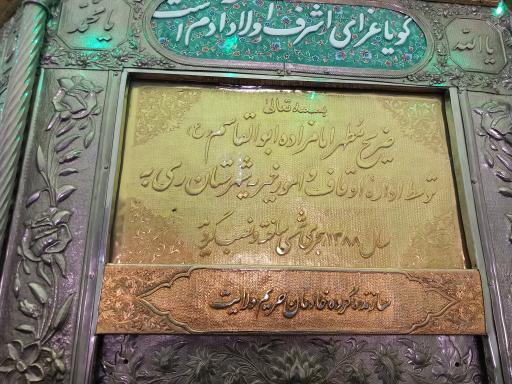 یا محمد
گویا عزای اشرف اولاد آدم است
یا الله
بسمه تعالی
ضریح مطهر امامزاده ابوالقاسم (ع)
توسط اداره اوقاف و امور خیریه شهرستان ری به
سال ۱۳۸۸ هجری شمسی ساخته و نصب گردید
سازنده گروه خادمان حریم ولایت